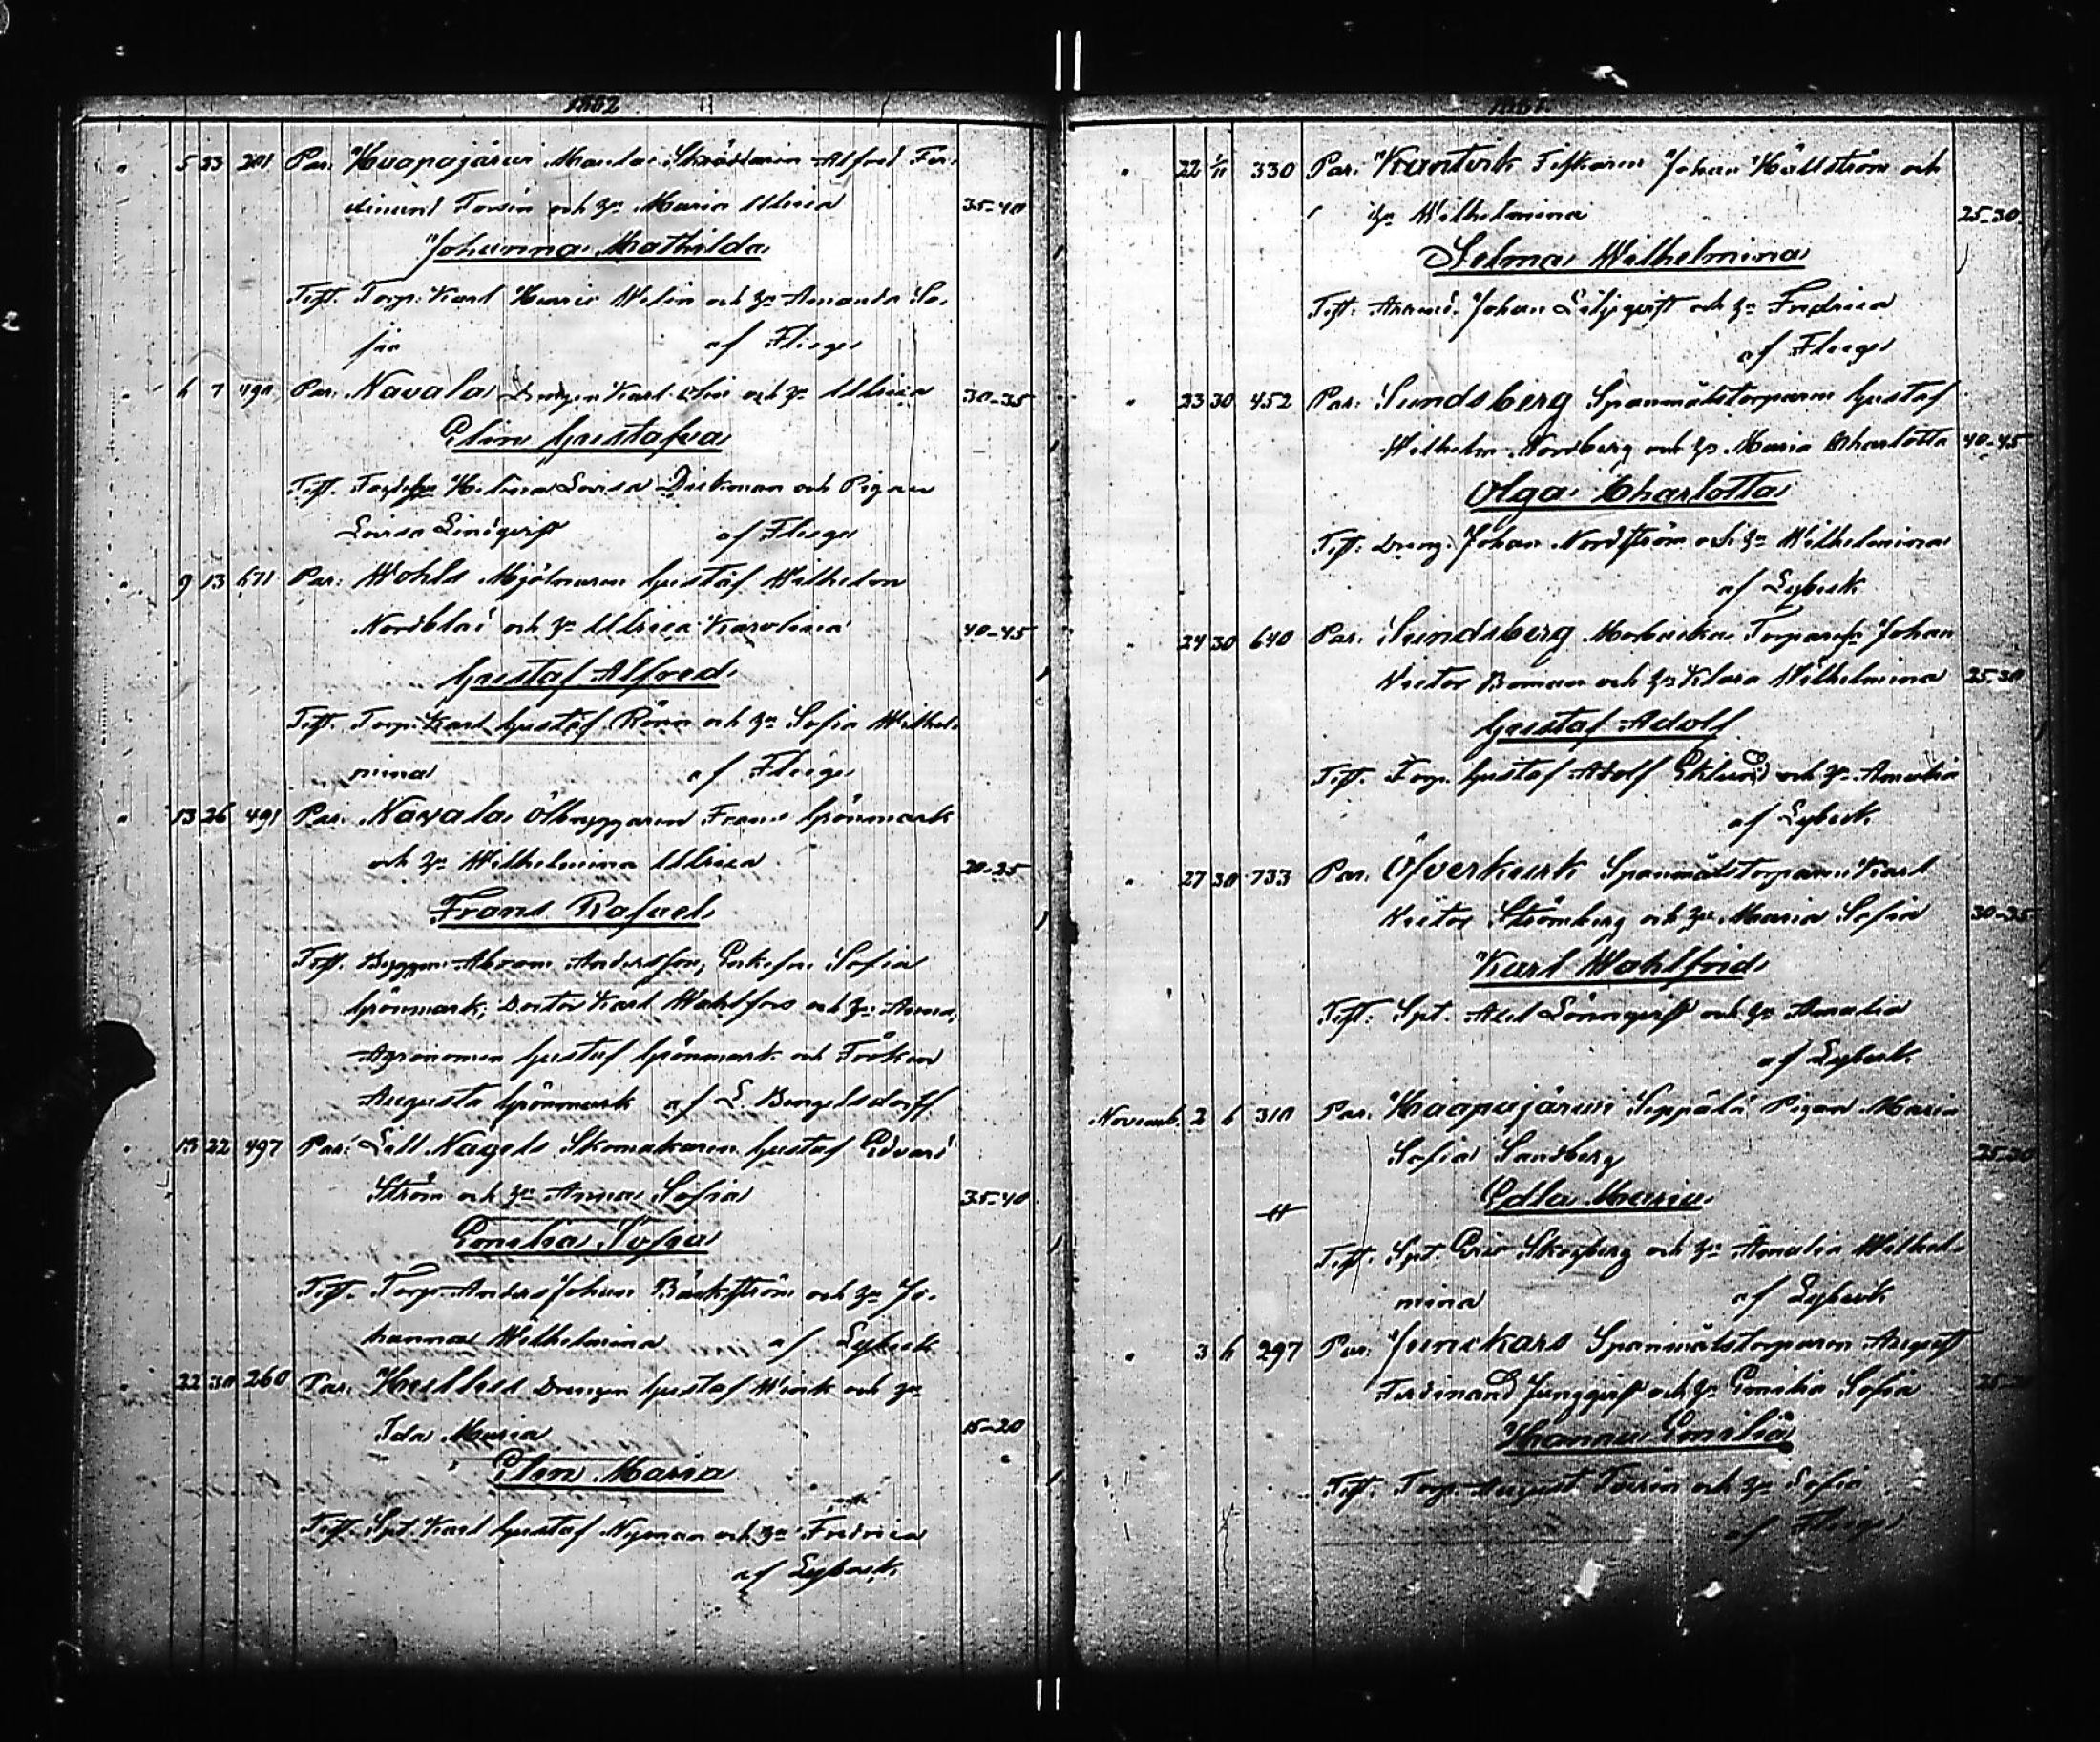 1882
" 5 23 201 Par. Haapajärvi Skräddaren Alfred Fer-
dinand Forsén och h:u Maria Ulrica 35-40
Johanna Mathilda
Test. Torp: Karl Henric Welin och h:u Amanda So-
fia af Flege
" 6 7 490 Par: Navala Drengen Karl och h:u Ulrica 30-35
Elin Gustafva
Test. Helena Lovisa Dickman och Pigan
Lovisa Lindqvist af Flege
" 9 13 671 Par: Wohls Mjölnaren Gustaf Wilhelm
Nordblad och h:u Ulrica Karolina 40-45
Gustaf Alfred
Test. Torp: Karl Gustaf Rönn och h:u Sofia Wilhel-
mina af Flege
" 13 26 491 Par. Navala Ölbryggaren Frans Grönmark
och h:u Wilhelmina Ulrica 20-25
Frans Rafael
Test. Bryggm: Abram Andersson, Enkefru Sofia
Grönmark, Doctor Karl Wahlfors och h:u Anna,
Agronomen Gustaf Grönmark och Fröken
Augusta Grönmark af L. Bengelsdorff
13 22 497 Par: Lill Nagels Skomakaren Gustaf Edvard
Ström och h:u Anna Sofia 35-40
Emilia Sofia
Test. Torp. Anders Johan Bäckström och h:u Jo-
hanna Wilhelmina af Lybeck
22 30 260 Par. Drengen Gustaf och h:u
Ida Maria 15-20
Elin Maria
Test. Spt. Karl Gustaf Nyman och h:u Fredrica
af Lybeck
1882
" 22 1/11 330 Par. Kantvik Fiskaren Johan Hällström och
h:u Wilhelmina 25-30
Selma Wilhelmina
Test: Johan Liljeqvist och h:u Fredrica
af Flege
" 23 30 452 Par: Sundsberg Spanmålstorparen Gustaf
Wilhelm Nordberg och h:u Maria Charlotta 40-45
Olga Charlotta
Test: Dreng. Johan Nordström och h:u Wilhelmina
af Lybeck
" 24 30 640 Par. Sundsberg Morbacka Torparen Johan
Victor Boman och h:u Klara Wilhelmina 25-30
Gustaf Adolf
Test. Torp. Gustaf Adolf Eklund och h:u Amalia
af Lybeck
" 27 30 733 Par. Öfverkurk Spanmålstorparen Karl
Victor Strömberg och h:u Maria Sofia 30-35
Karl Wahlfrid
Test: Spt. Axel Lönnqvist och h:u Amalia
af Lybeck
Novemb. 2 6 310 Par. Haapajärvi Seppälä Pigan Maria
Sofia Sandberg 25-30
Edla Maria
Test. Spt. Eric Skogberg och h:u Amalia Wilhel-
mina af Lybeck
" 3 6 297 Par. Junckars Spanmålstorparen August
Ferdinand Jungqvist och h:u Emilia Sofia
Hanna Emilia
Test. Torp. August Forsén och h:u Sofia
af Flege